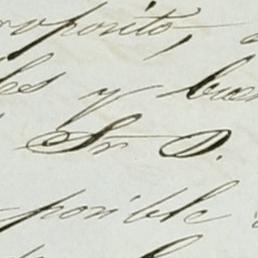 roposito,
les y bue
Sr D.
posible